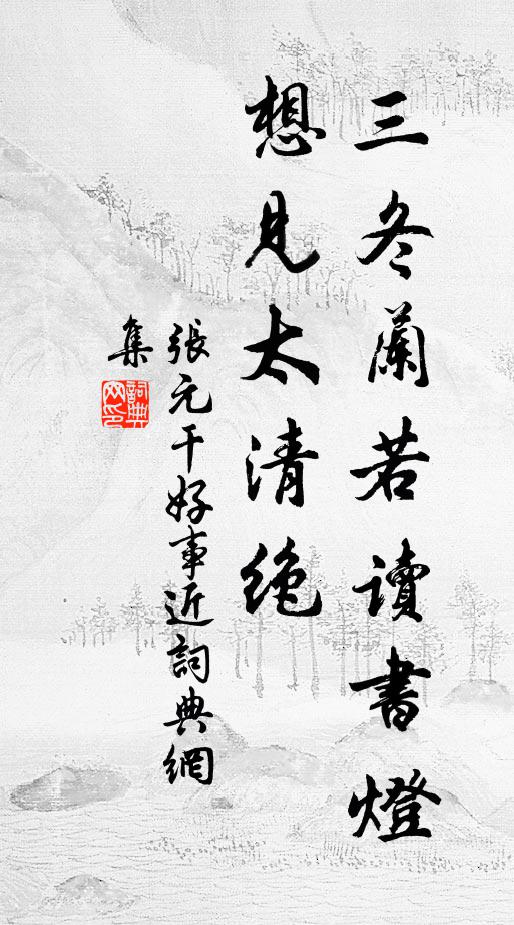 三冬蘭若讀書燈
想見太清絶
張元干好事近詞典網
集
詞典
网印